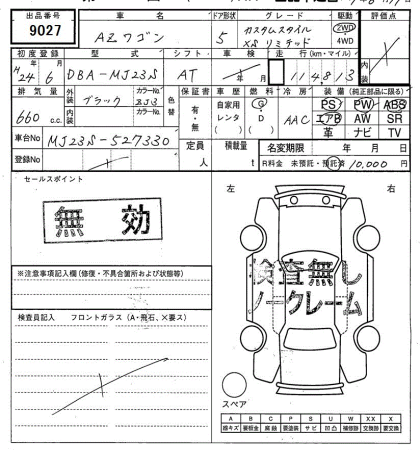 出品番号 車名 ドア形状 グレード 駆動 評価点
9027 AZワゴン 5 カスタムスタイル XSリミテッド 2WD 4WD
初度登録 型式 シフト 車検 走行(km・マイル)
H24年6月 DBA-MJ23S AT 年 月 114,813
排気量 外装 内装 カラーNo. 色替 保証書 車歴 燃料 冷房 装備(純正部品に限る)
660 c.c. ブラック BJ3 有・無 自家用 レンタ G・D AAC PS PW ABS
エアB AW SR
革 ナビ TV
車台No MJ23S-527330 定員 人 積載量 t 名変期限 年 月 日
登録No R料金 未預託・預託済 10,000円
セールスポイント
無効
左 右
検査無し
ノークレーム
※注意事項記入欄(修復・不具合箇所および状態等)
検査員記入 フロントガラス(A・飛石、×要ス)
スペア
A B C P S U W XX X
線キズ 要板金 腐蝕 要塗装 サビ 凹凸 補修跡 交換跡 要交換